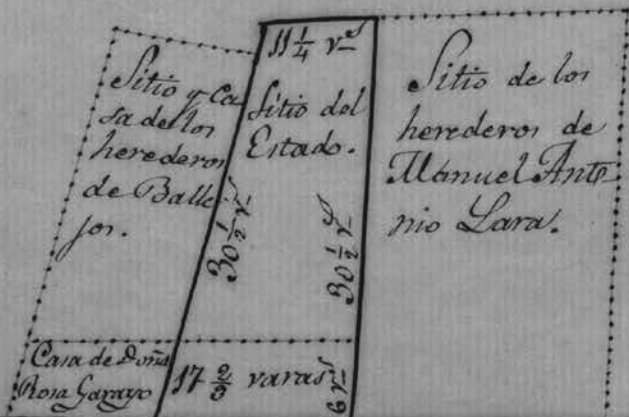 11 1/4 v.s
Sitio y Ca
sa de los
herederos
de Balle
jos.
Sitio del
Estado.
30 1/2 v.s
30 1/2 v.s
Sitio de los
herederos de
Manuel Anto-
nio Lara.
Casa de Doña
Rosa Garayo
17 2/3 varas
6 v.s